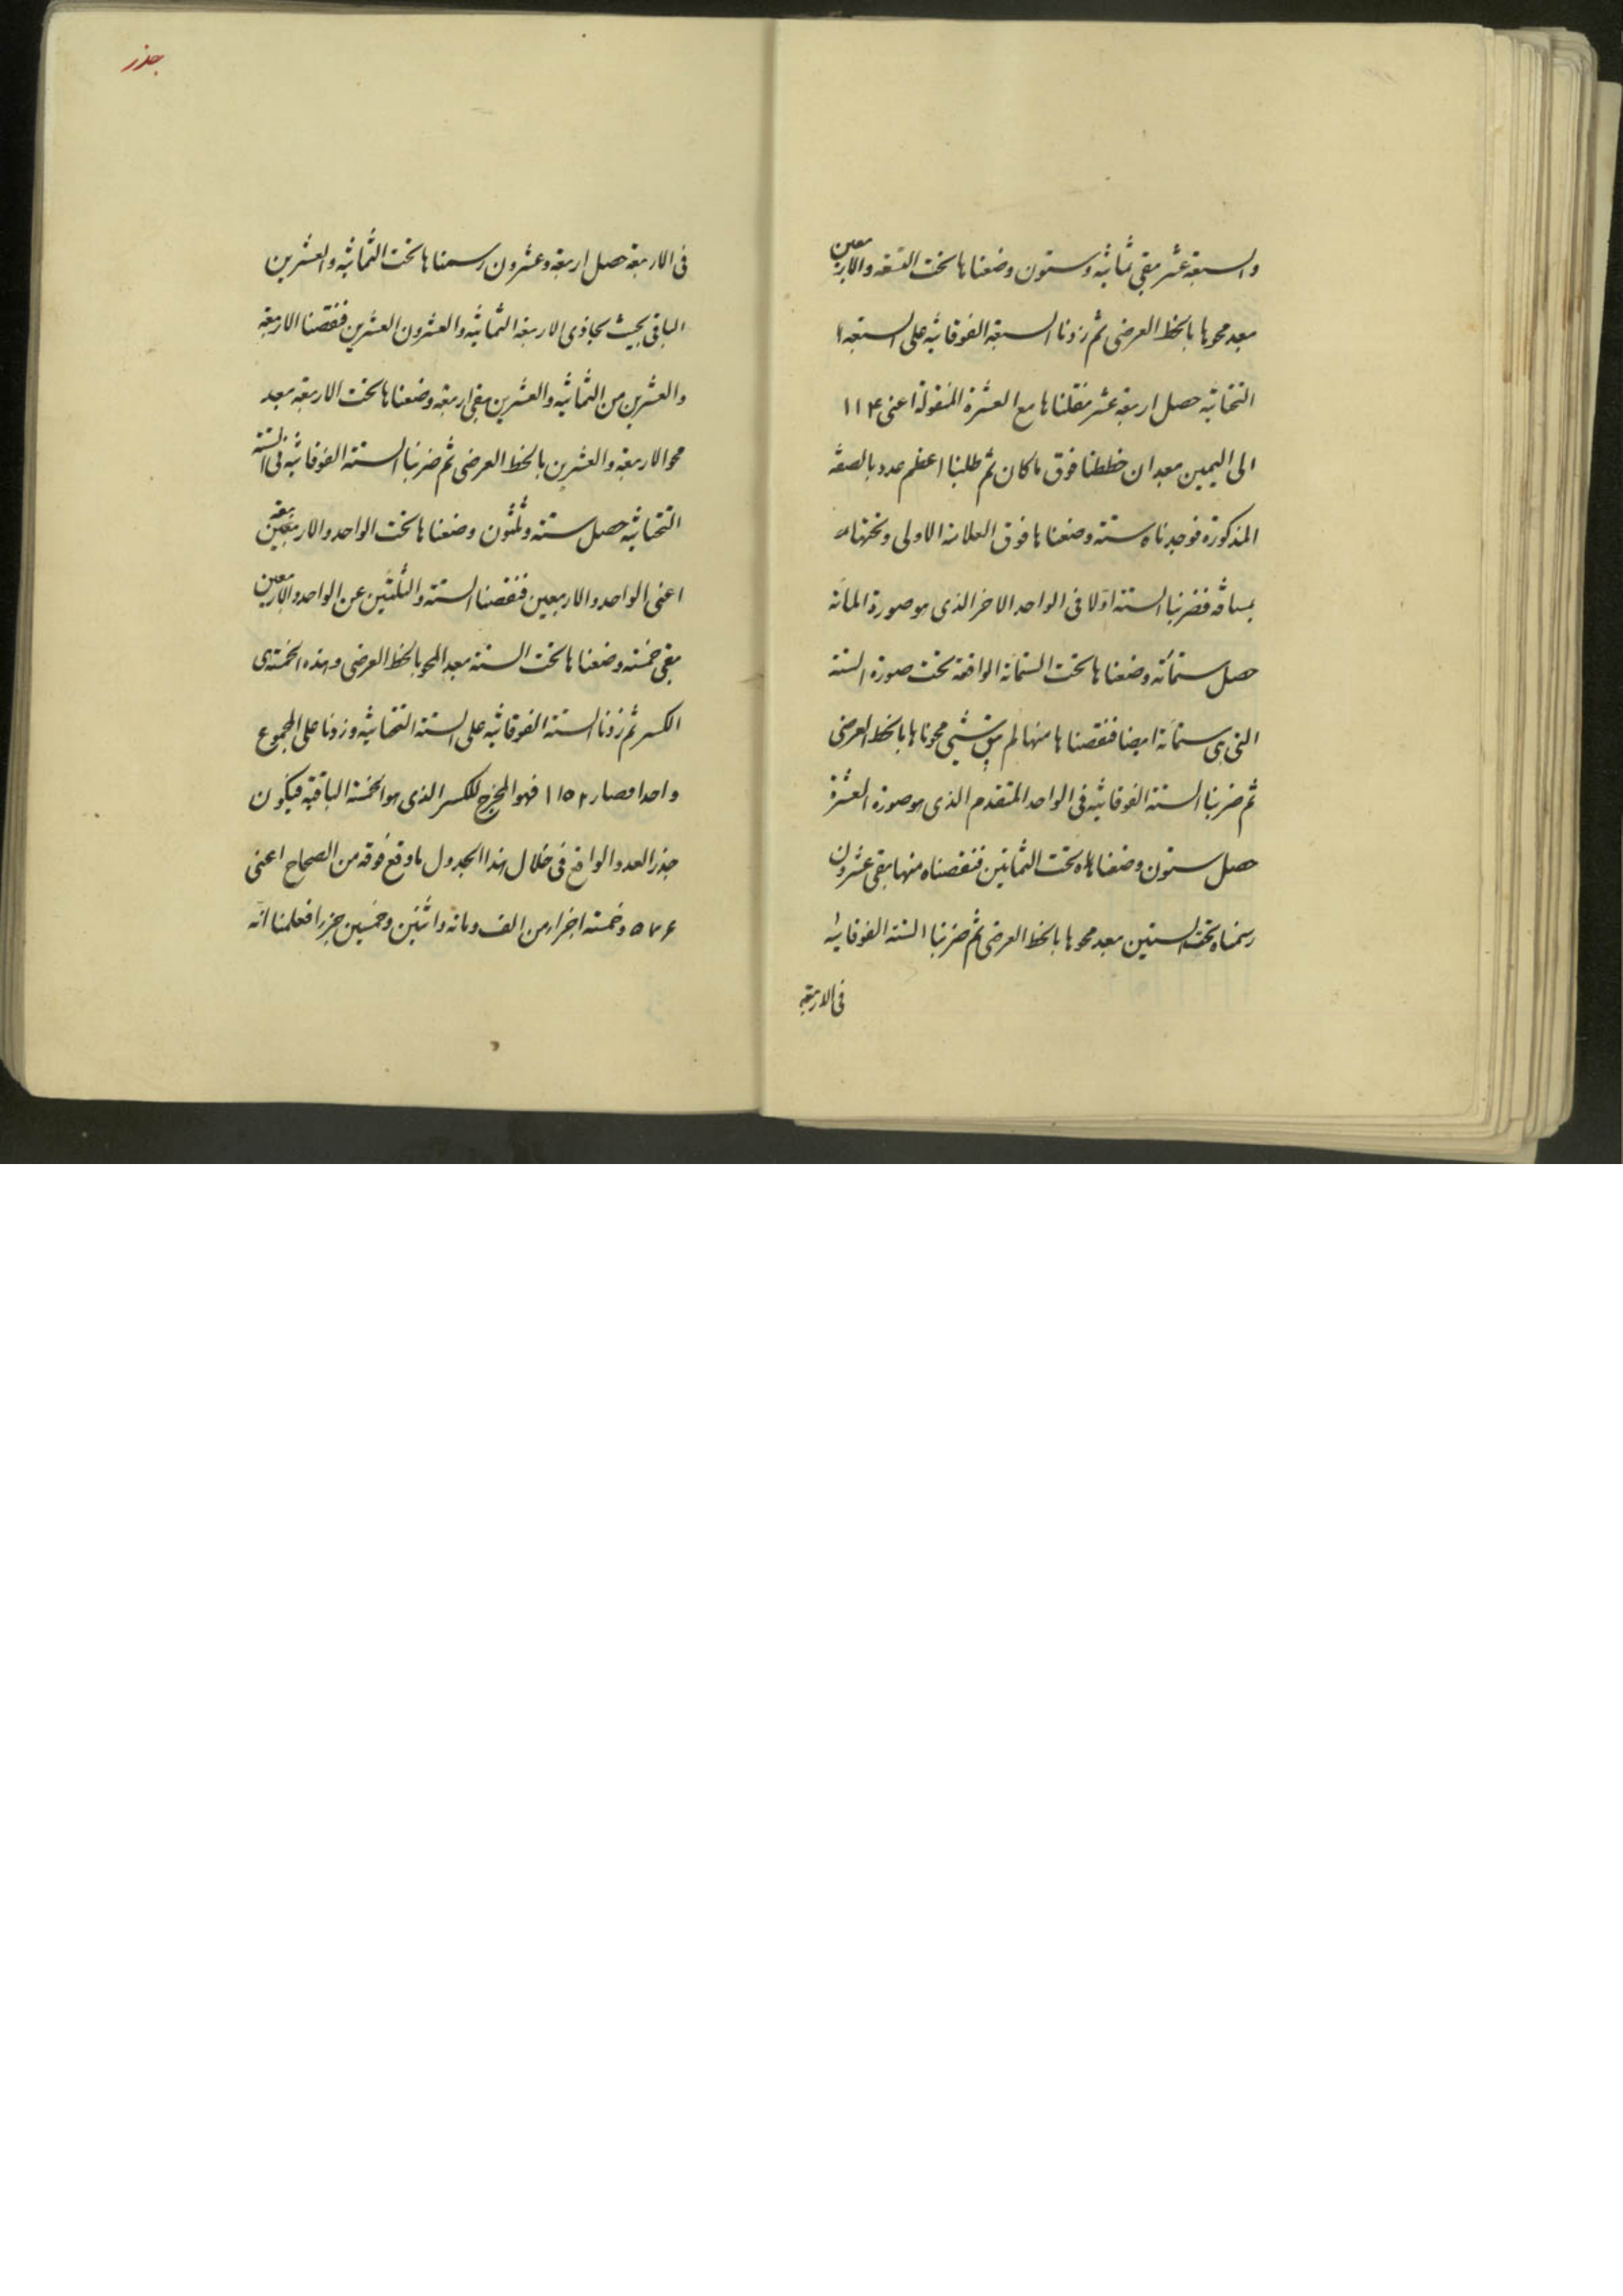 والسبعة عشر بقي ثمانيه وستون وضعناها تحت التسعه والاربعين
بعد محوها بالخط العرضى ثم زدنا السبعة الفوقانيه على السبعة
التحتانيه حصل اربعة عشر نقلناها مع العشرة المنقولة اعنى ١١۴
الى اليمين بعد ان خططنا فوق ماكان ثم طلبنا اعظم عدد بالصفة
المذكورة فوجدناه ستة وضعناها فوق العلامة الاولى وتحتها
بمسافة فضربنا الستة اولا فى الواحد الاخر الذى هو صورة المائة
حصل ستمائة وضعناها تحت الستمائة الواقعة تحت صورة الستة
التى هى ستمائة ايضا فنقصناها منها لم يبق شيئ محوناها بالخط العرضى
ثم ضربنا الستة الفوقانيه فى الواحد المتقدم الذى هو صورة العشرة
حصل ستون وضعناه تحت الثمانين فنقصناه منها بقى عشرون
رسمناه تحت الستين بعد محوها بالخط العرضى ثم ضربنا الستة الفوقانيه
فى الاربعة
جذر
فى الاربعة حصل اربعة وعشرون رسمناها تحت الثمانيه والعشرين
الباقى بحيث يحاذى الاربعة الثمانيه والعشرون العشرين فنقصنا الاربعة
والعشرين من الثمانيه والعشرين بقى اربعة وضعناها تحت الاربعة بعد
محو الاربعة والعشرين بالخط العرضى ثم ضربنا الستة الفوقانيه فى الستة
التحتانيه حصل ستة وثلثون وضعناها تحت الواحد والاربعين
اعنى الواحد والاربعين فنقصنا الستة والثلثين عن الواحد والاربعين
بقى خمسة وضعناها تحت الستة بعد المحو بالخط العرضى وهذه الخمسة هى
الكسر ثم زدنا الستة الفوقانيه على الستة التحتانيه وزدنا على المجموع
واحدا فصار ١١٥٣ فهو المخرج للكسر الذى هو الخمسة الباقية فيكون
جذر العدد الواقع فى خلال هذا الجدول ماوقع فوقه من الصحاح اعنى
٥٧۶ وخمسة اجزاء من الف ومائة واثنين وخمسين جزءا فعلمنا انه